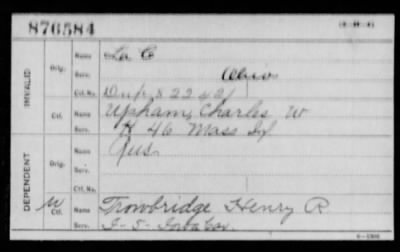 876584
INVALID
Orig. Name La C
Serv. Ohio
Ctf. No. Dup. 822421
Ctf. Name Upham, Charles W
Serv. H 46 Mass Inf
DEPENDENT
Orig. Name Gus
Serv.
Ctf. No.
M
Ctf. Name Trowbridge Henry R
Serv. I-5-Iowa Cav.